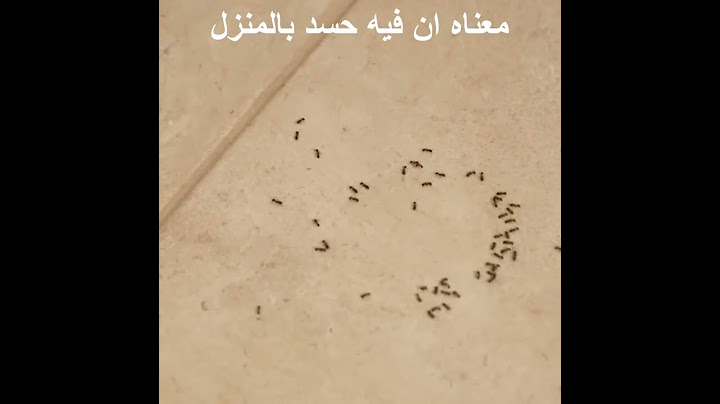 معناه ان فيه حسد بالمنزل